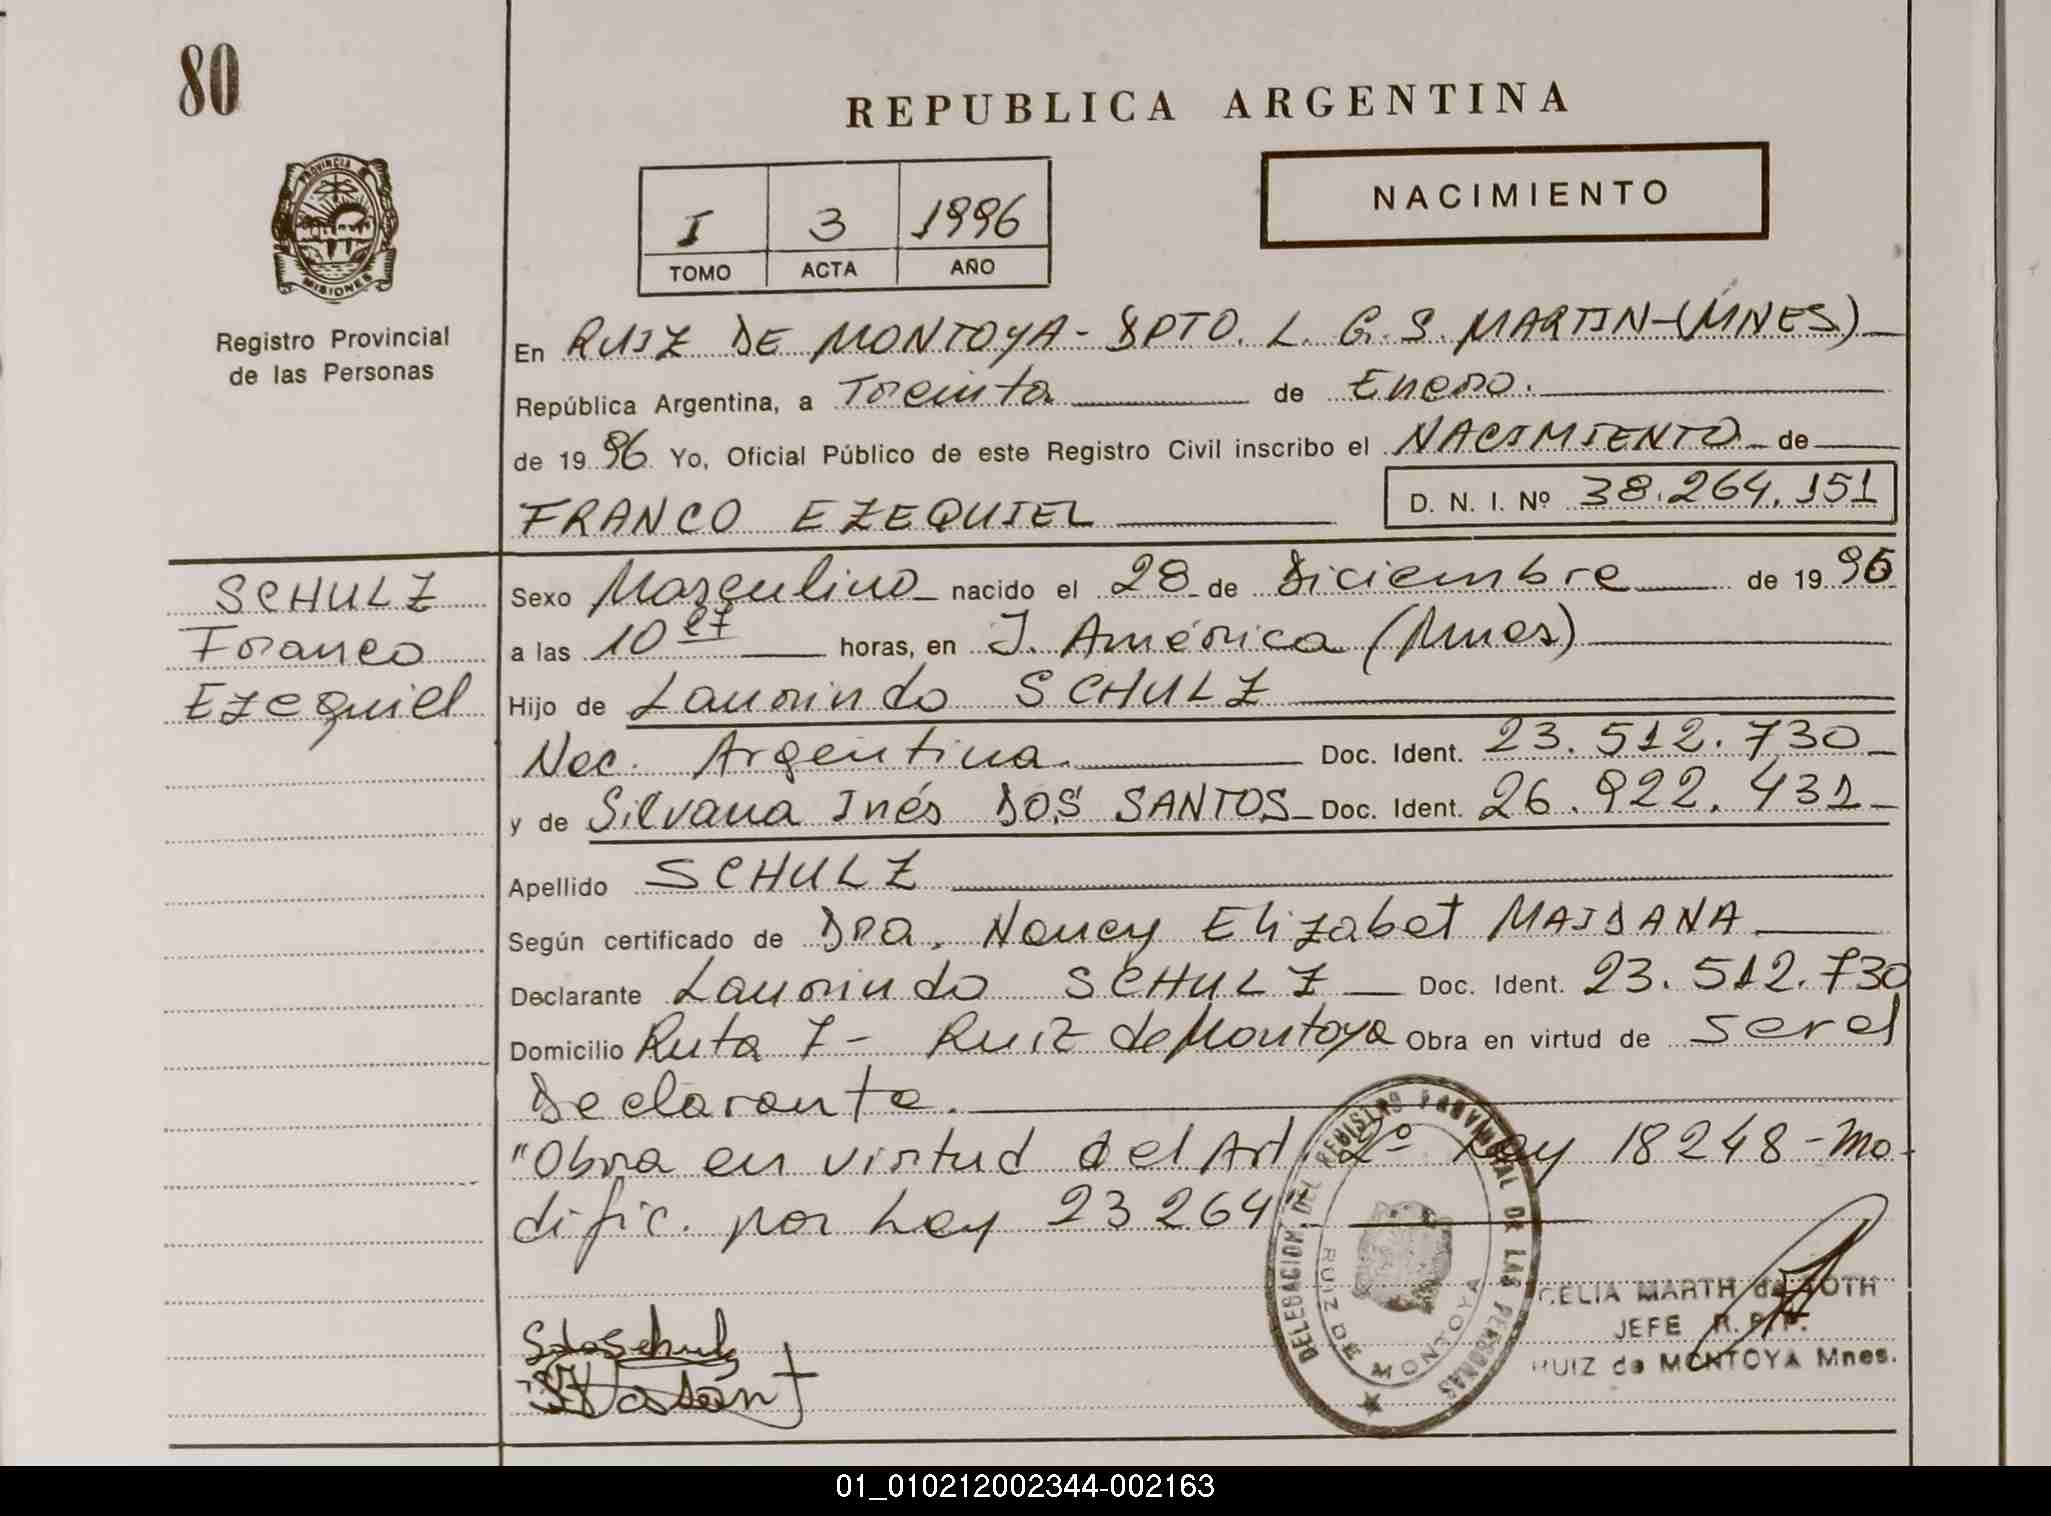 80
REPUBLICA ARGENTINA
PROVINCIA DE
MISIONES
Registro Provincial
de las Personas
I 3 1996
TOMO ACTA AÑO
NACIMIENTO
En RUIZ DE MONTOYA - DPTO. L. G. S. MARTIN - (MNES)
República Argentina, a Treinta de Enero.
de 1996 Yo, Oficial Público de este Registro Civil inscribo el NACIMIENTO de
FRANCO EZEQUIEL D. N. I. Nº 38.264.151
SCHULZ
Franco
Ezequiel
Sexo Masculino nacido el 28 de Diciembre de 19
a las 10 27 horas, en J. América (Mnes)
Hijo de Laurindo SCHULZ
Nac. Argentina. Doc. Ident. 23.512.730
y de Silvana Inés DOS SANTOS Doc. Ident. 26.922.431
Apellido SCHULZ
Según certificado de Dra. Nancy Elizabet MAIDANA
Declarante Laurindo SCHULZ Doc. Ident. 23.512.730
Domicilio Ruta 7 - Ruiz de Montoya Obra en virtud de ser el
Declarante.
"Obra en virtud del Art. 2º Ley 18248 - Mo-
dific. por Ley 23264"
DELEGACION DEL REGISTRO PROVINCIAL DE LAS PERSONAS
RUIZ DE MONTOYA
CELIA MARTH de ROTH
JEFE R.P.P.
RUIZ de MONTOYA Mnes.
01_010212002344-002163